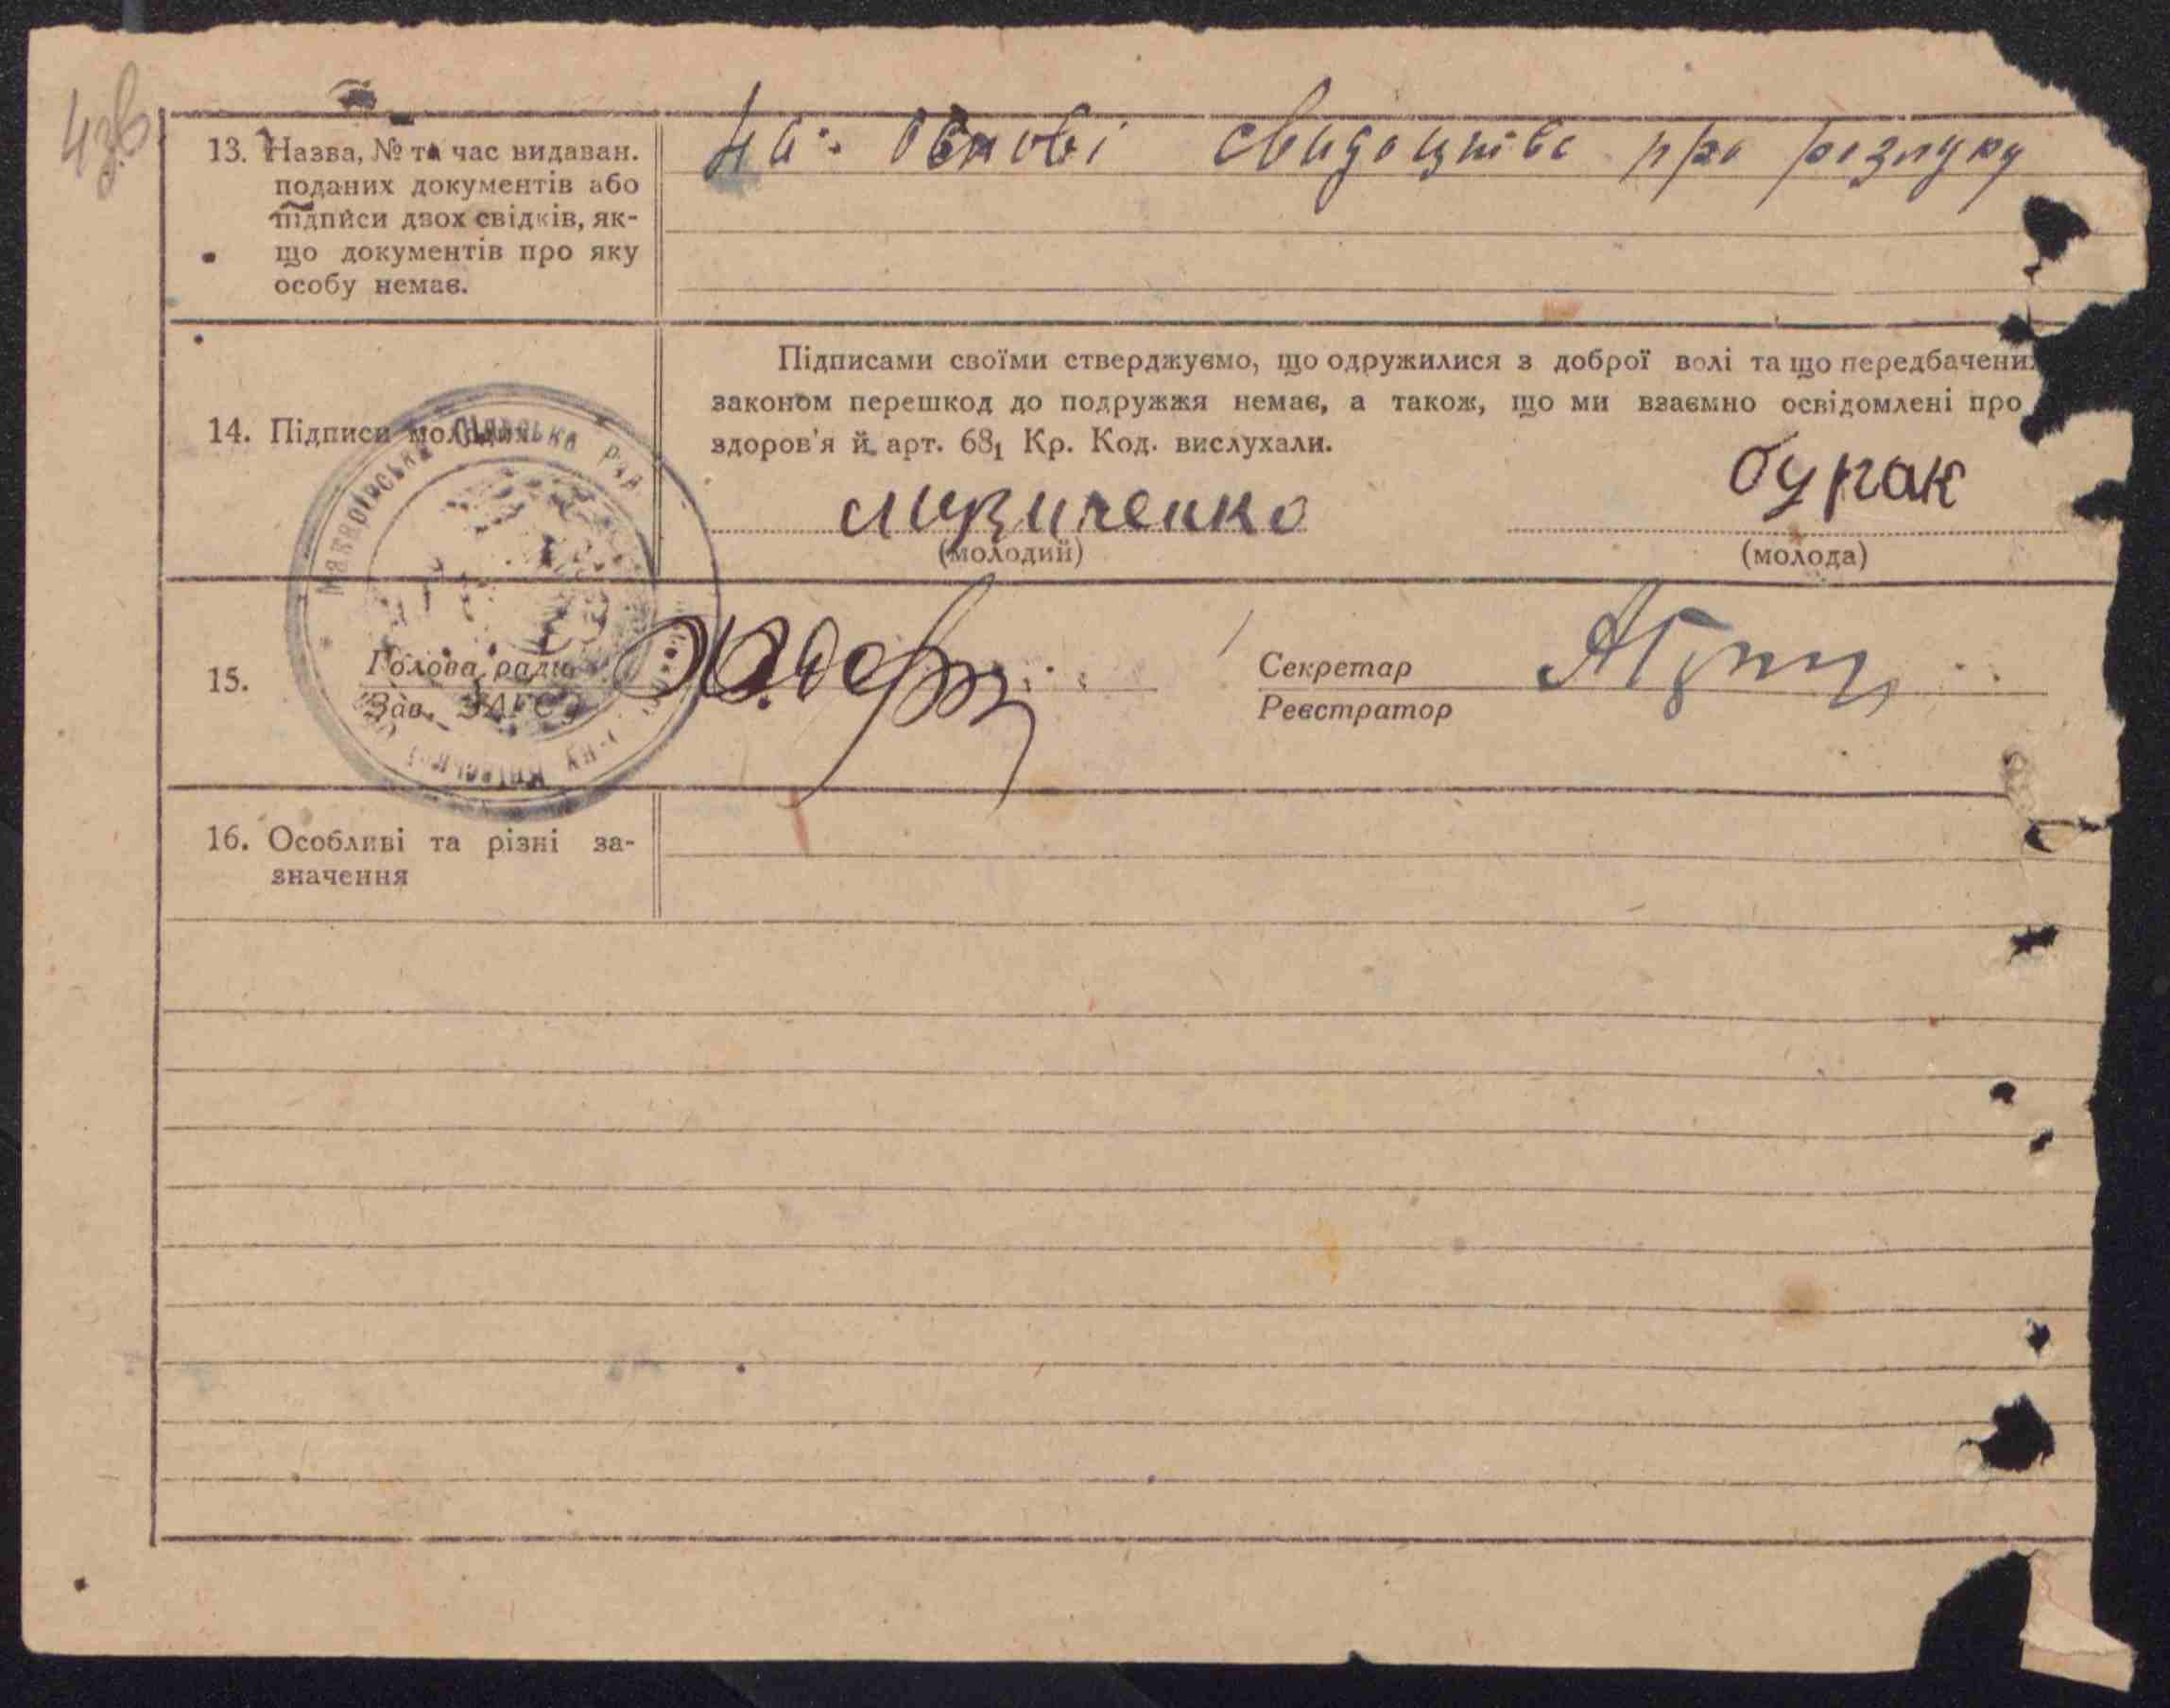 4зв
13. Назва, № та час видаван.
поданих документів або
підписи двох свідків, як-
що документів про яку
особу немає.
на основі свидоцтва про розлуку
14. Підписи молодих
Підписами своїми стверджуємо, що одружилися з доброї волі та що передбачених
законом перешкод до подружжя немає, а також, що ми взаємно освідомлені про
здоров'я й арт. 68₁ Кр. Код. вислухали.
Музиченко
(молодий)
бурак
(молода)
15.
Голова ради
Зав. ЗАГС'у
Секретар
Реєстратор
16. Особливі та різні за-
значення